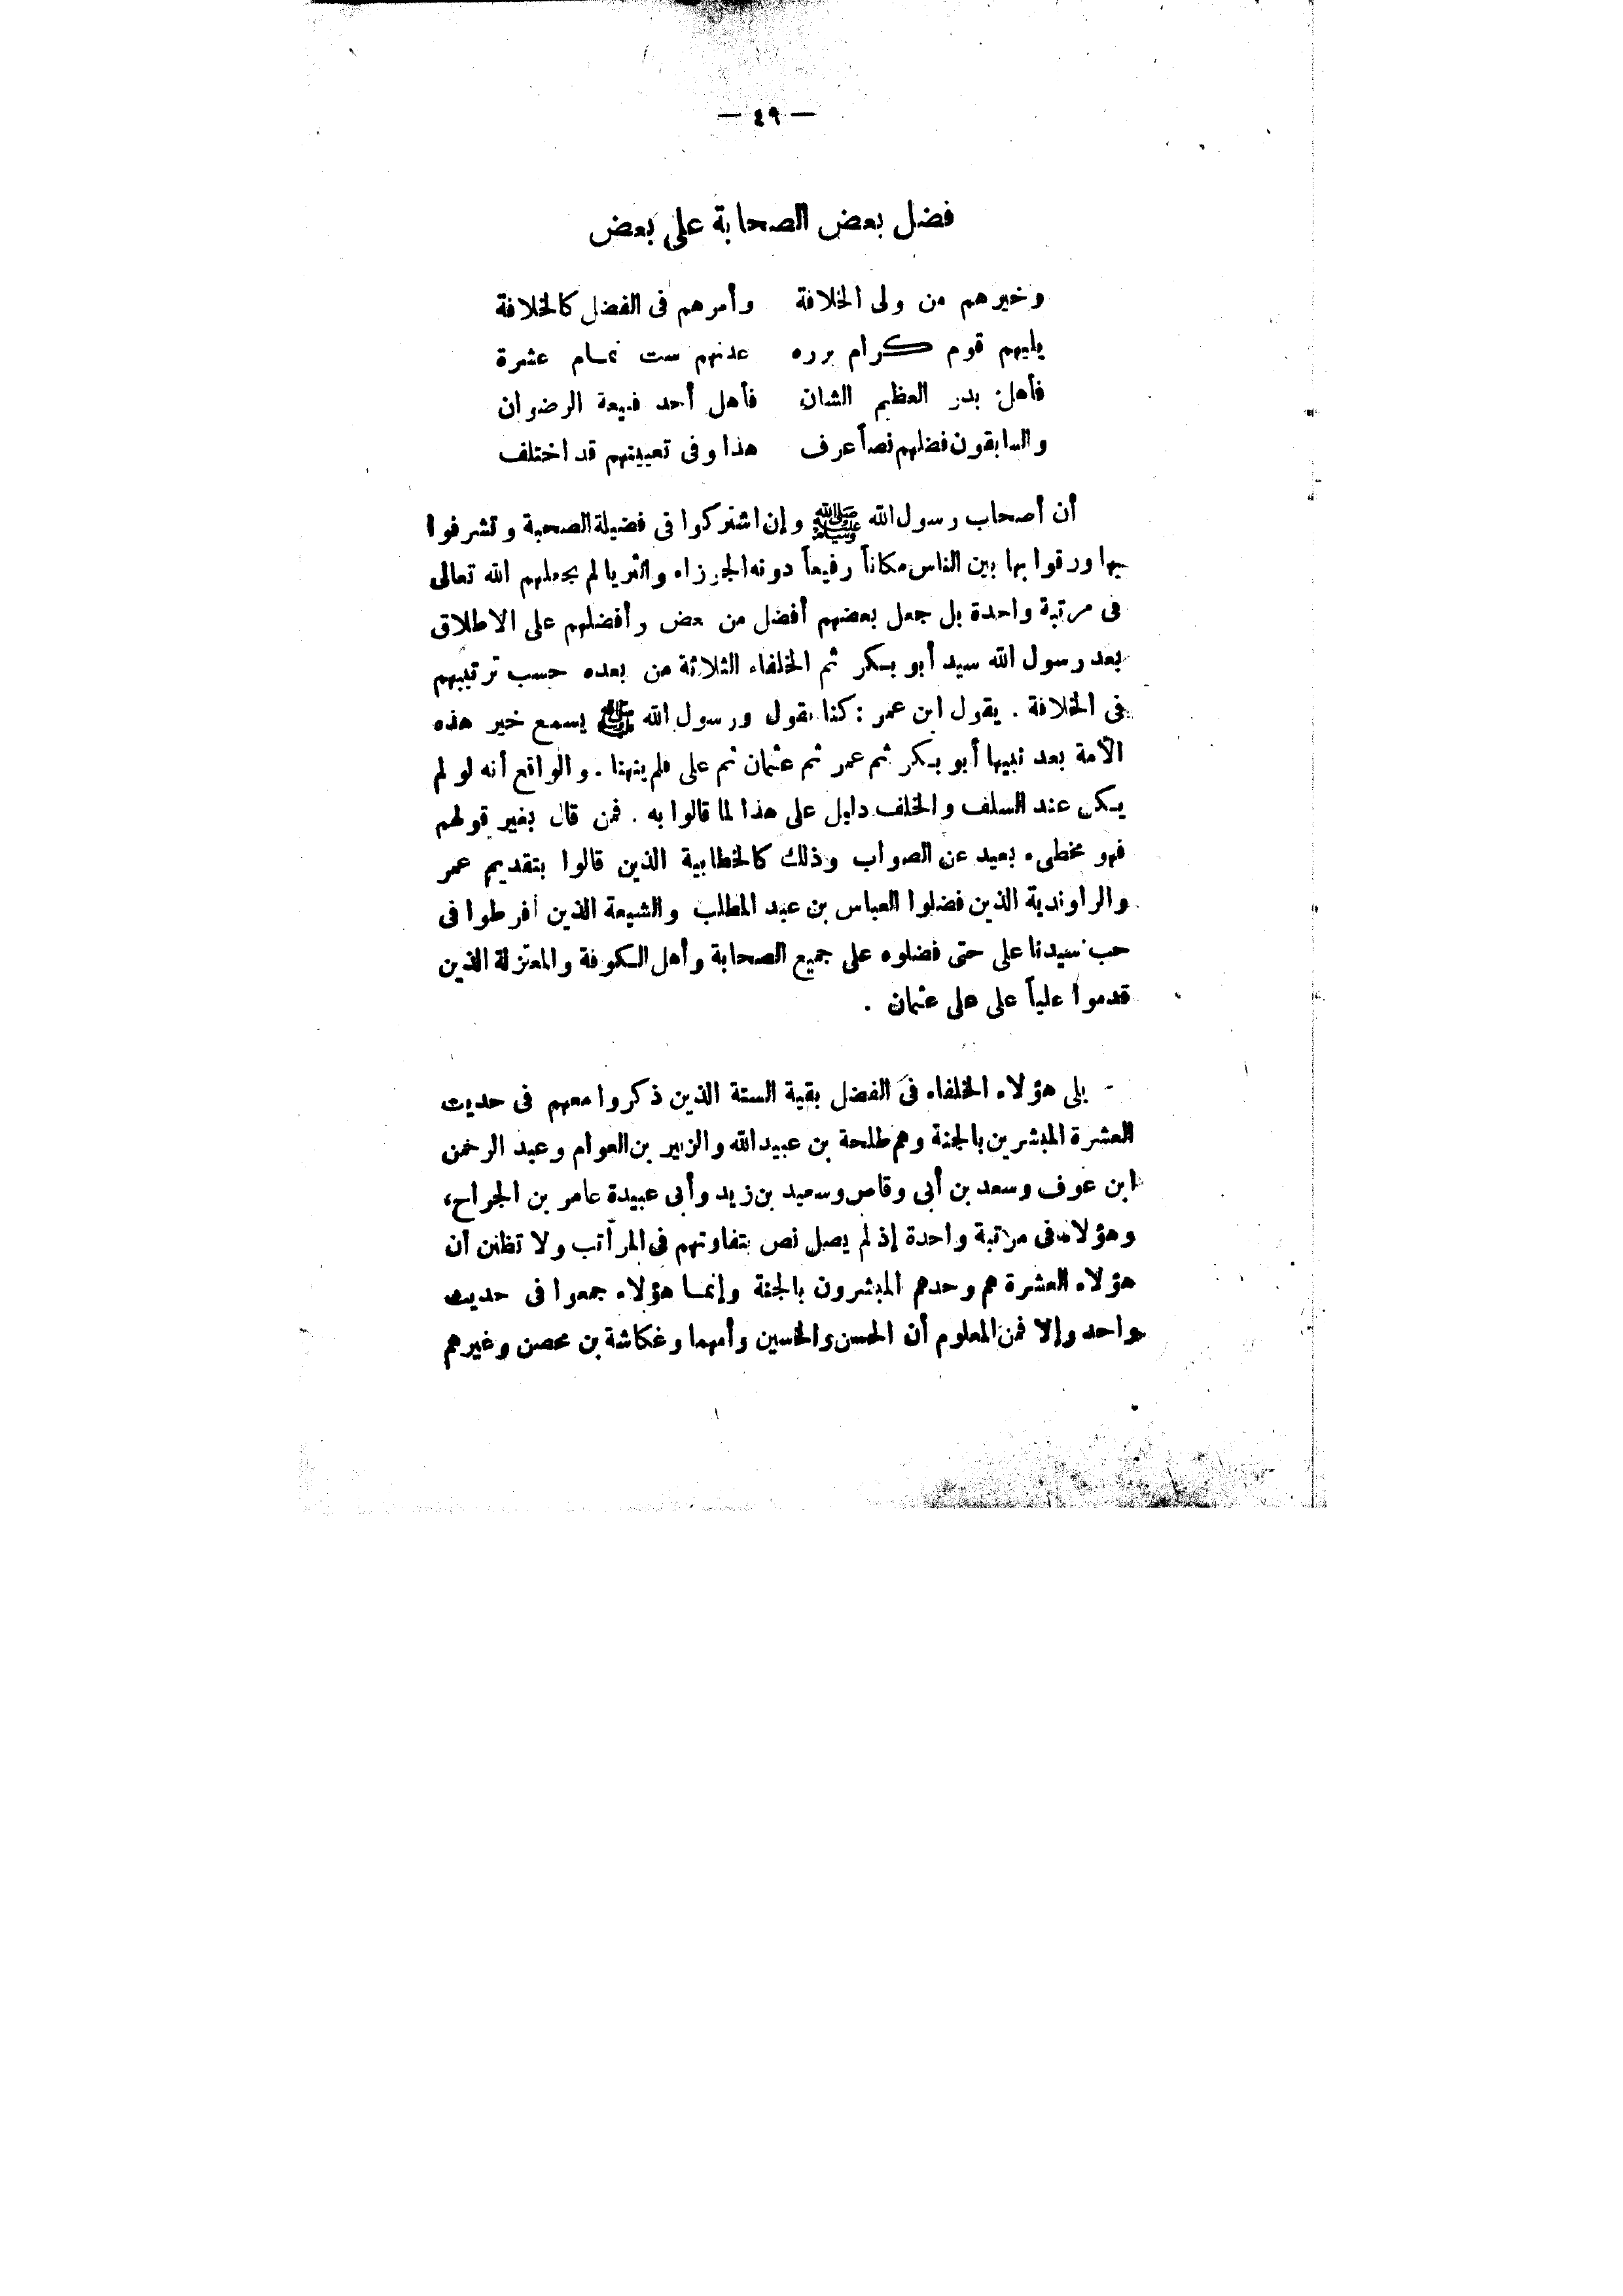 — ٤٩ —
فضل بعض الصحابة على بعض
وخيرهم من ولى الخلافة وأمرهم فى الفضل كالخلافة
يليهم قوم كرام برره عدتهم ست تمام عشرة
فأهل بدر العظيم الشان فأهل أحد فبيعة الرضوان
والسابقون فضلهم نصاً عرف هذا وفى تعيينهم قد اختلف
أن أصحاب رسول الله ﷺ وإن اشتركوا فى فضيلة الصحبة وتشرفوا
بها ورقوا بها بين الناس مكاناً رفيعاً دونه الجوزاء والثريا لم يجعلهم الله تعالى
فى مرتبة واحدة بل جعل بعضهم أفضل من بعض وأفضلهم على الاطلاق
بعد رسول الله سيد أبو بكر ثم الخلفاء الثلاثة من بعده حسب ترتيبهم
فى الخلافة . يقول ابن عمر : كنا نقول ورسول الله ﷺ يسمع خير هذه
الأمة بعد نبيها أبو بكر ثم عمر ثم عثمان ثم على فلم ينهنا . والواقع أنه لو لم
يكن عند السلف والخلف دليل على هذا لما قالوا به . فمن قال بغير قولهم
فهو مخطىء بعيد عن الصواب وذلك كالخطابية الذين قالوا بتقديم عمر
والراوندية الذين فضلوا العباس بن عبد المطلب والشيعة الذين أفرطوا فى
حب سيدنا على حتى فضلوه على جميع الصحابة وأهل الكوفة والمعتزلة الذين
قدموا علياً على على عثمان .
يلى هؤلاء الخلفاء فى الفضل بقية الستة الذين ذكروا معهم فى حديث
العشرة المبشرين بالجنة وهم طلحة بن عبيد الله والزبير بن العوام وعبد الرحمن
ابن عوف وسعد بن أبى وقاص وسعيد بن زيد وأبى عبيدة عامر بن الجراح،
وهؤلاء فى مرتبة واحدة إذ لم يصل نص بتفاوتهم فى المراتب ولا تظنن أن
هؤلاء العشرة هم وحدهم المبشرون بالجنة وإنما هؤلاء جمعوا فى حديث
واحد وإلا فمن المعلوم أن الحسن والحسين وأمهما وعكاشة بن محصن وغيرهم